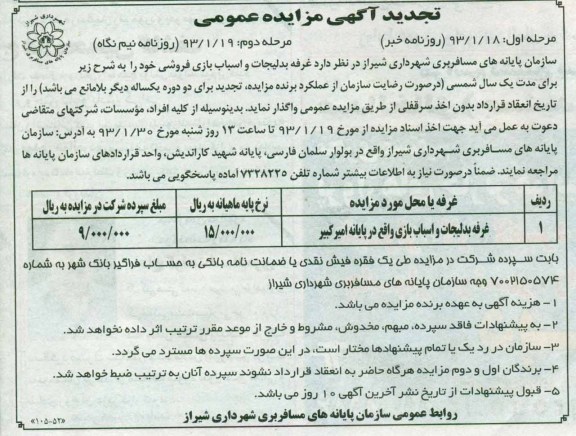 تجدید آگهی مزایده عمومی
مرحله اول: ۹۳/۱/۱۸ (روزنامه خبر) مرحله دوم: ۹۳/۱/۱۹ (روزنامه نیم نگاه)
سازمان پایانه های مسافربری شهرداری شیراز در نظر دارد غرفه بدلیجات و اسباب بازی فروشی خود را به شرح زیر
برای مدت یک سال شمسی (درصورت رضایت سازمان از عملکرد برنده مزایده، تجدید برای دو دوره یکساله دیگر بلامانع می باشد) را از
تاریخ انعقاد قرارداد بدون اخذ سرقفلی از طریق مزایده عمومی واگذار نماید. بدینوسیله از کلیه افراد، مؤسسات، شرکتهای متقاضی
دعوت به عمل می آید جهت اخذ اسناد مزایده از مورخ ۹۳/۱/۱۹ تا ساعت ۱۳ روز شنبه مورخ ۹۳/۱/۳۰ به آدرس: سازمان
پایانه های مسافربری شهرداری شیراز واقع در بولوار سلمان فارسی، پایانه شهید کاراندیش، واحد قراردادهای سازمان پایانه ها
مراجعه نمایند. ضمناً درصورت نیاز به اطلاعات بیشتر شماره تلفن ۷۳۲۸۲۲۰ آماده پاسخگویی می باشد.
ردیف غرفه یا محل مورد مزایده نرخ پایه ماهیانه به ریال مبلغ سپرده شرکت در مزایده به ریال
۱ غرفه بدلیجات و اسباب بازی واقع در پایانه امیرکبیر ۱۵/۰۰۰/۰۰۰ ۹/۰۰۰/۰۰۰
بابت سپرده شرکت در مزایده طی یک فقره فیش نقدی یا ضمانت نامه بانکی به حساب فراگیر بانک شهر به شماره
۷۰۰۲۱۵۰۵۷۴ وجه سازمان پایانه های مسافربری شهرداری شیراز
۱- هزینه آگهی به عهده برنده مزایده می باشد.
۲- به پیشنهادات فاقد سپرده، مبهم، مخدوش، مشروط و خارج از موعد مقرر ترتیب اثر داده نخواهد شد.
۳- سازمان در رد یک یا تمام پیشنهادها مختار است، در این صورت سپرده ها مسترد می گردد.
۴- برندگان اول و دوم مزایده هرگاه حاضر به انعقاد قرارداد نشوند سپرده آنان به ترتیب ضبط خواهد شد.
۵- قبول پیشنهادات از تاریخ نشر آخرین آگهی ۱۰ روز می باشد.
روابط عمومی سازمان پایانه های مسافربری شهرداری شیراز
«۱۰۵-۵۲»